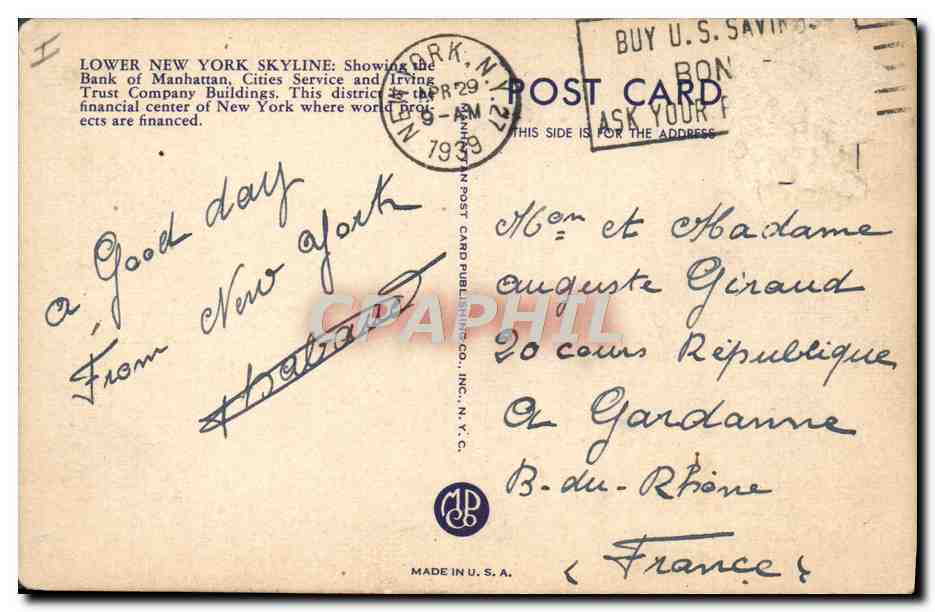 LOWER NEW YORK SKYLINE: Showing the
Bank of Manhattan, Cities Service and Irving
Trust Company Buildings. This district is the
financial center of New York where world proj-
ects are financed.
NEW YORK, N.Y. 27
APR 29
9-AM
1939
BUY U.S. SAVINGS
BON
ASK YOUR P
POST CARD
THIS SIDE IS FOR THE ADDRESS
MANHATTAN POST CARD PUBLISHING CO., INC., N. Y. C.
a Good day
From New York
Mon et Madame
auguste Giraud
20 cours République
a Gardanne
B-du-Rhône
(France)
CPAPHIL
MPCo
MADE IN U. S. A.